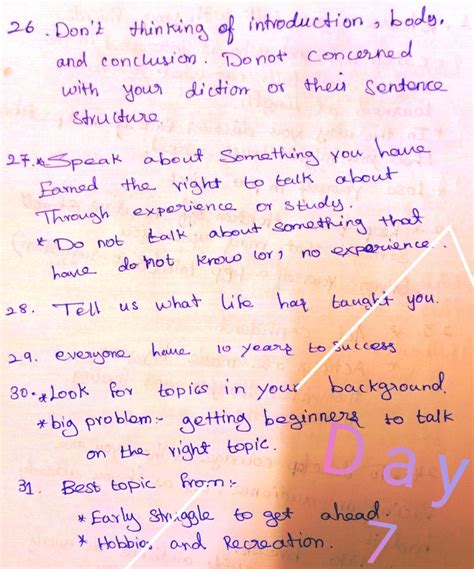 26. Don't thinking of introduction, body,
and conclusion. Donot concerned
with your diction or their sentence
structure.
27.*Speak about Something you have
Earned the right to talk about
Through experience or study.
* Do not talk about something that
have do not know (or) no experience.
28. Tell us what life has taught you.
29. everyone have 10 years to success
30.*Look for topics in your background.
*big problem:- getting beginners to talk
on the right topic.
31. Best topic from:-
*Early Struggle to get ahead.
* Hobbies and Recreation.
Day
7